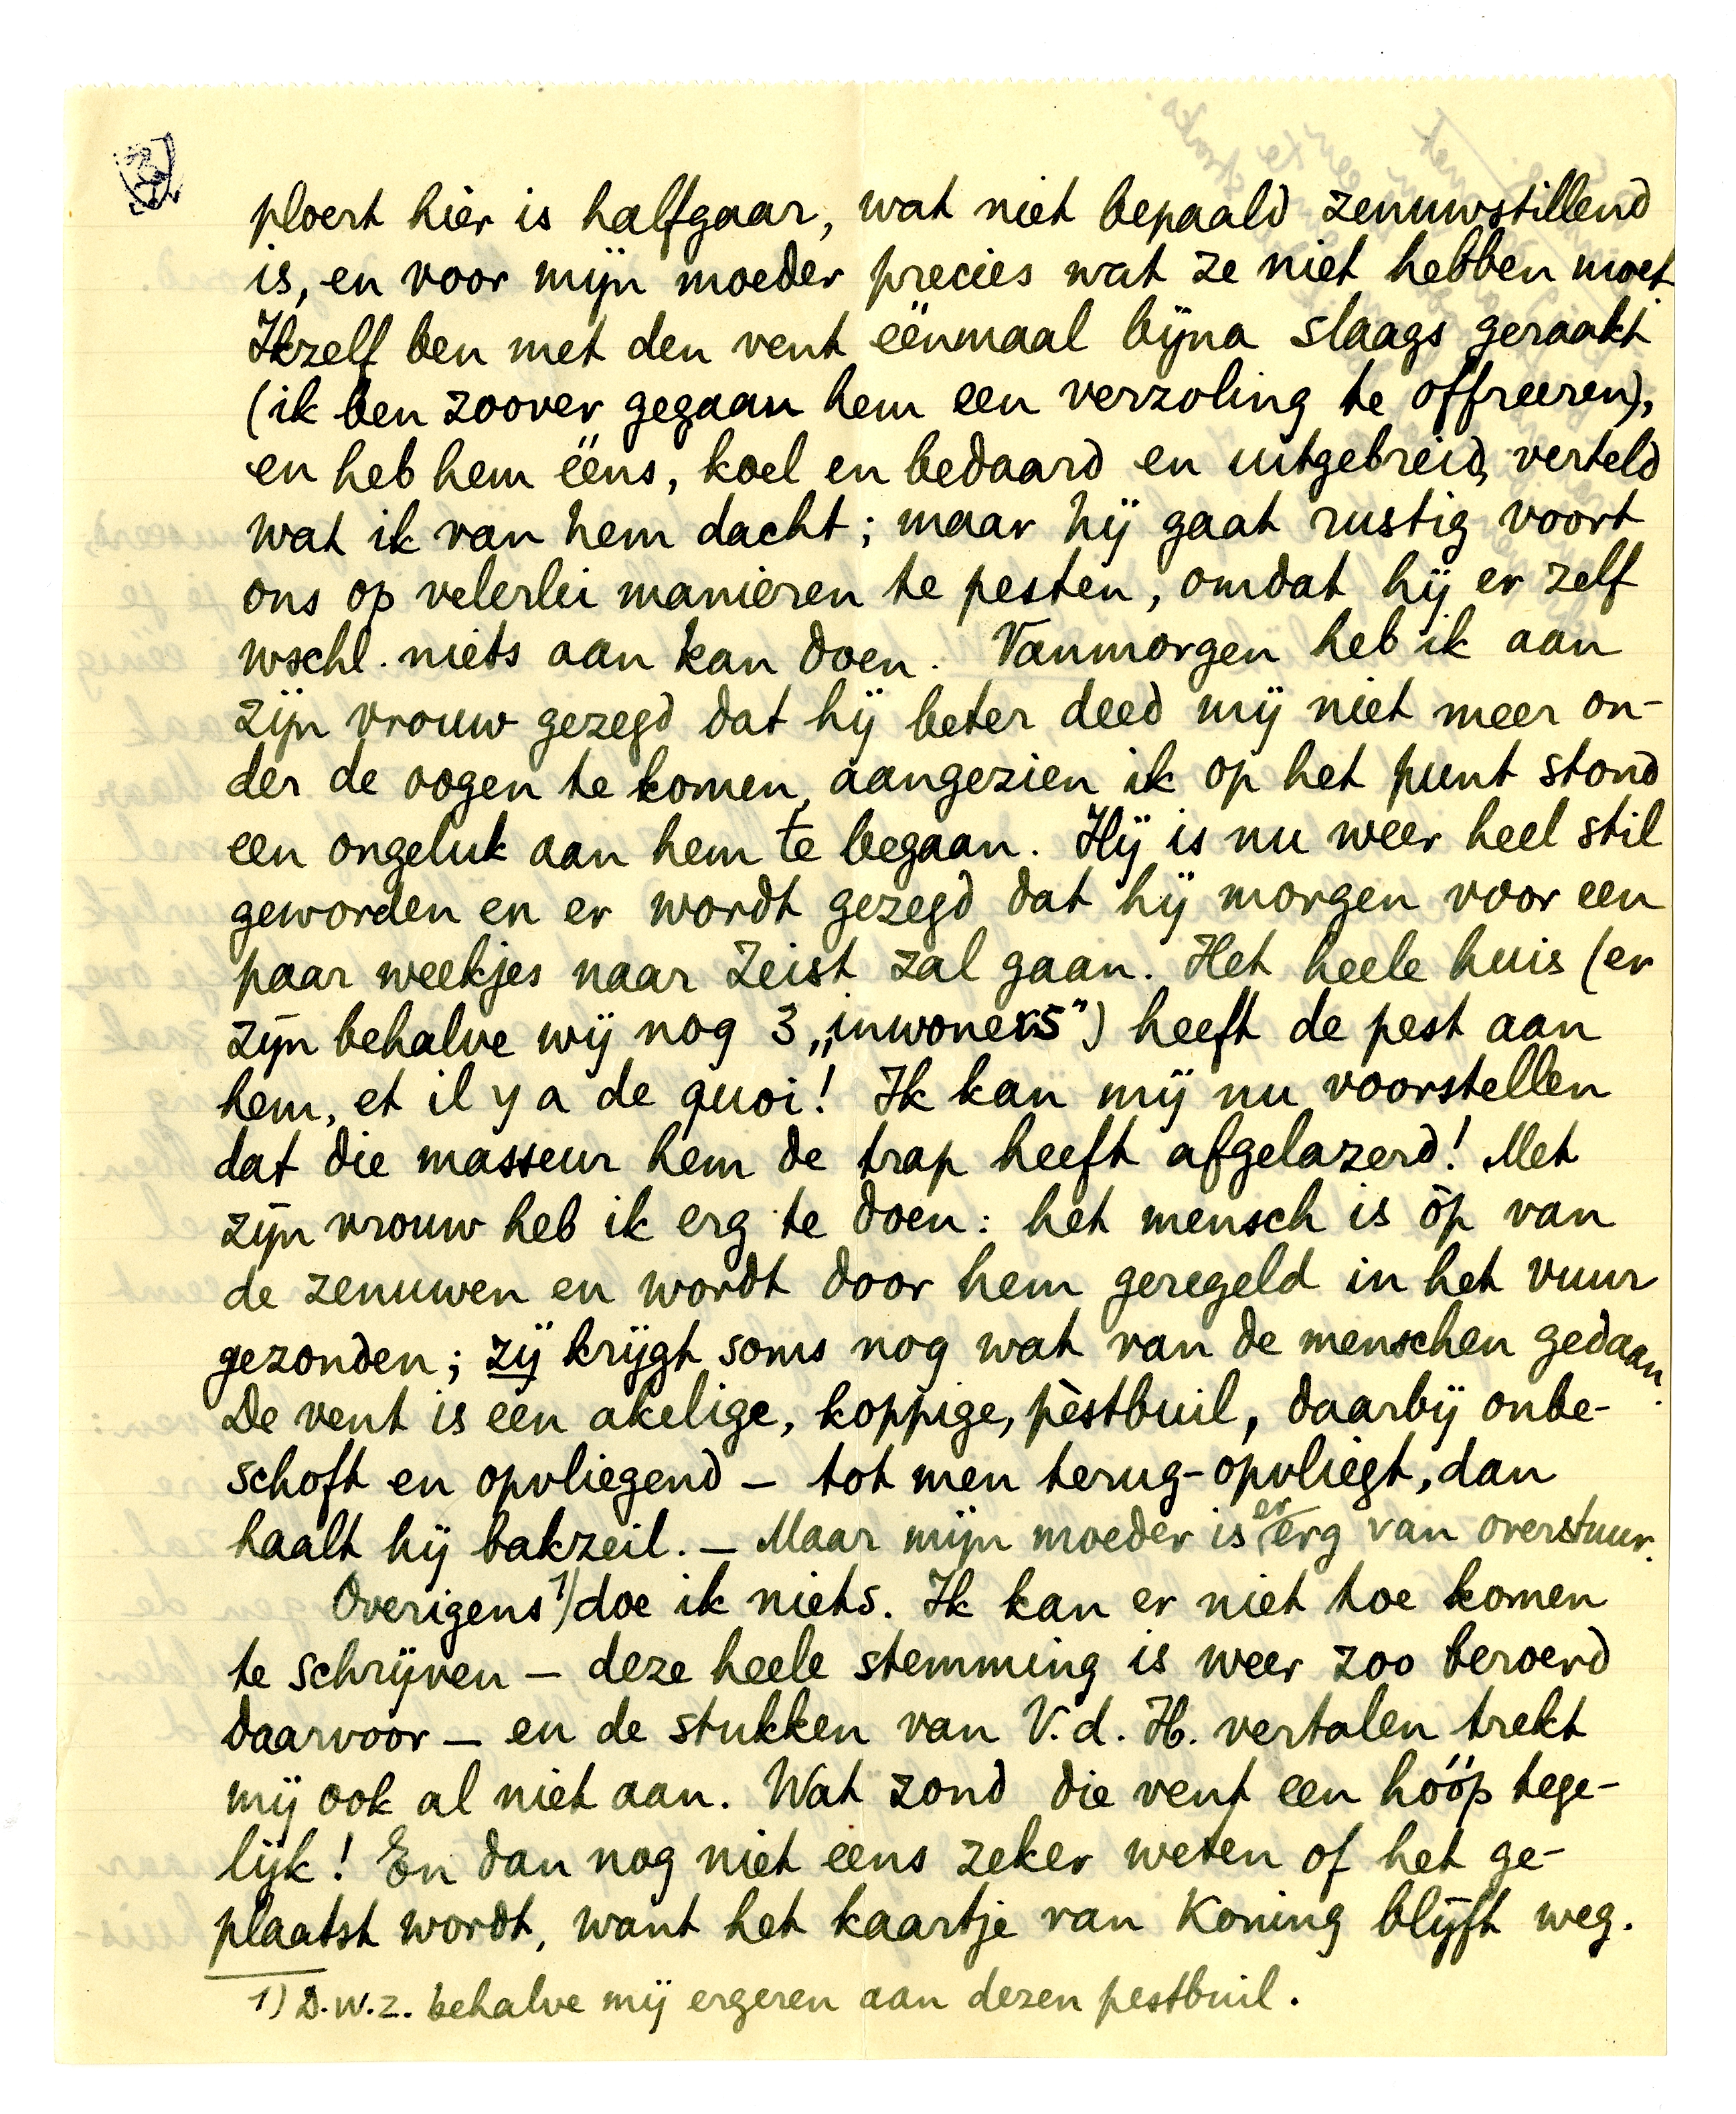 ploert hier is halfgaar, wat niet bepaald zenuwstillend
is, en voor mijn moeder precies wat ze niet hebben moet.
Ikzelf ben met den vent éénmaal bijna slaags geraakt
(ik ben zoover gegaan hem een verzoling te offreeren),
en heb hem ééns, koel en bedaard en uitgebreid, verteld
wat ik van hem dacht; maar hij gaat rustig voort
ons op velerlei manieren te pesten, omdat hij er zelf
wschl. niets aan kan doen. Vanmorgen heb ik aan
zijn vrouw gezegd dat hij beter deed mij niet meer on-
der de oogen te komen, aangezien ik op het punt stond
een ongeluk aan hem te begaan. Hij is nu weer heel stil
geworden en er wordt gezegd dat hij morgen voor een
paar weekjes naar Zeist zal gaan. Het heele huis (er
zijn behalve wij nog 3 „inwoners") heeft de pest aan
hem, et il y a de quoi! Ik kan mij nu voorstellen
dat die masseur hem de trap heeft afgelazerd! Met
zijn vrouw heb ik erg te doen: het mensch is òp van
de zenuwen en wordt door hem geregeld in het vuur
gezonden; zij krijgt soms nog wat van de menschen gedaan.
De vent is een akelige, koppige, pèstbuil, daarbij onbe-
schoft en opvliegend – tot men terug-opvliegt, dan
haalt hij bakzeil. – Maar mijn moeder is er erg van overstuur.
Overigens 1) doe ik niets. Ik kan er niet toe komen
te schrijven – deze heele stemming is weer zoo beroerd
daarvoor – en de stukken van V. d. H. vertalen trekt
mij ook al niet aan. Wat zond die vent een hóóp tege-
lijk! En dan nog niet eens zeker weten of het ge-
plaatst wordt, want het kaartje van Koning blijft weg.
1) D.w.z. behalve mij ergeren aan dezen pestbuil.